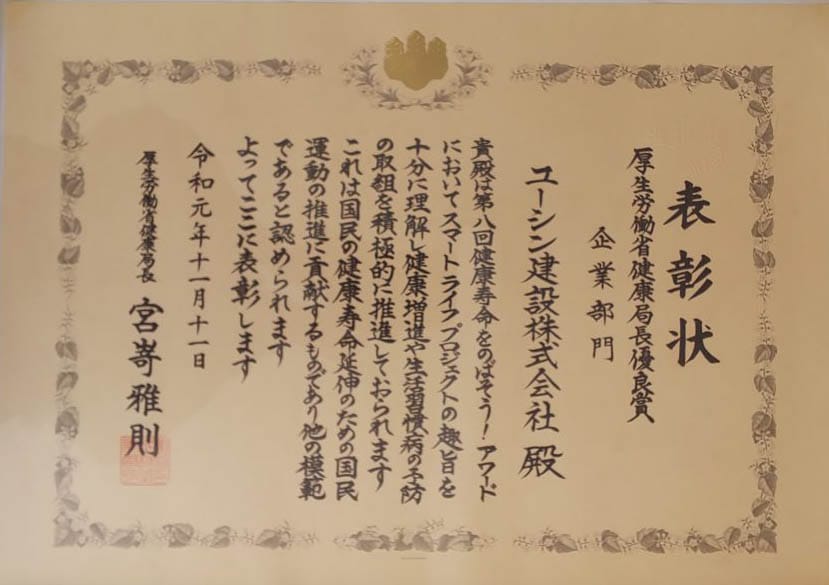 表彰状
厚生労働省健康局長優良賞
企業部門
ユーシン建設株式会社 殿
貴殿は第八回健康寿命をのばそう！アワード
においてスマートライフプロジェクトの趣旨を
十分に理解し健康増進や生活習慣病の予防
の取組を積極的に推進しておられます
これは国民の健康寿命延伸のための国民
運動の推進に貢献するものであり他の模範
であると認められます
よってここに表彰します
令和元年十一月十一日
厚生労働省健康局長 宮嵜雅則